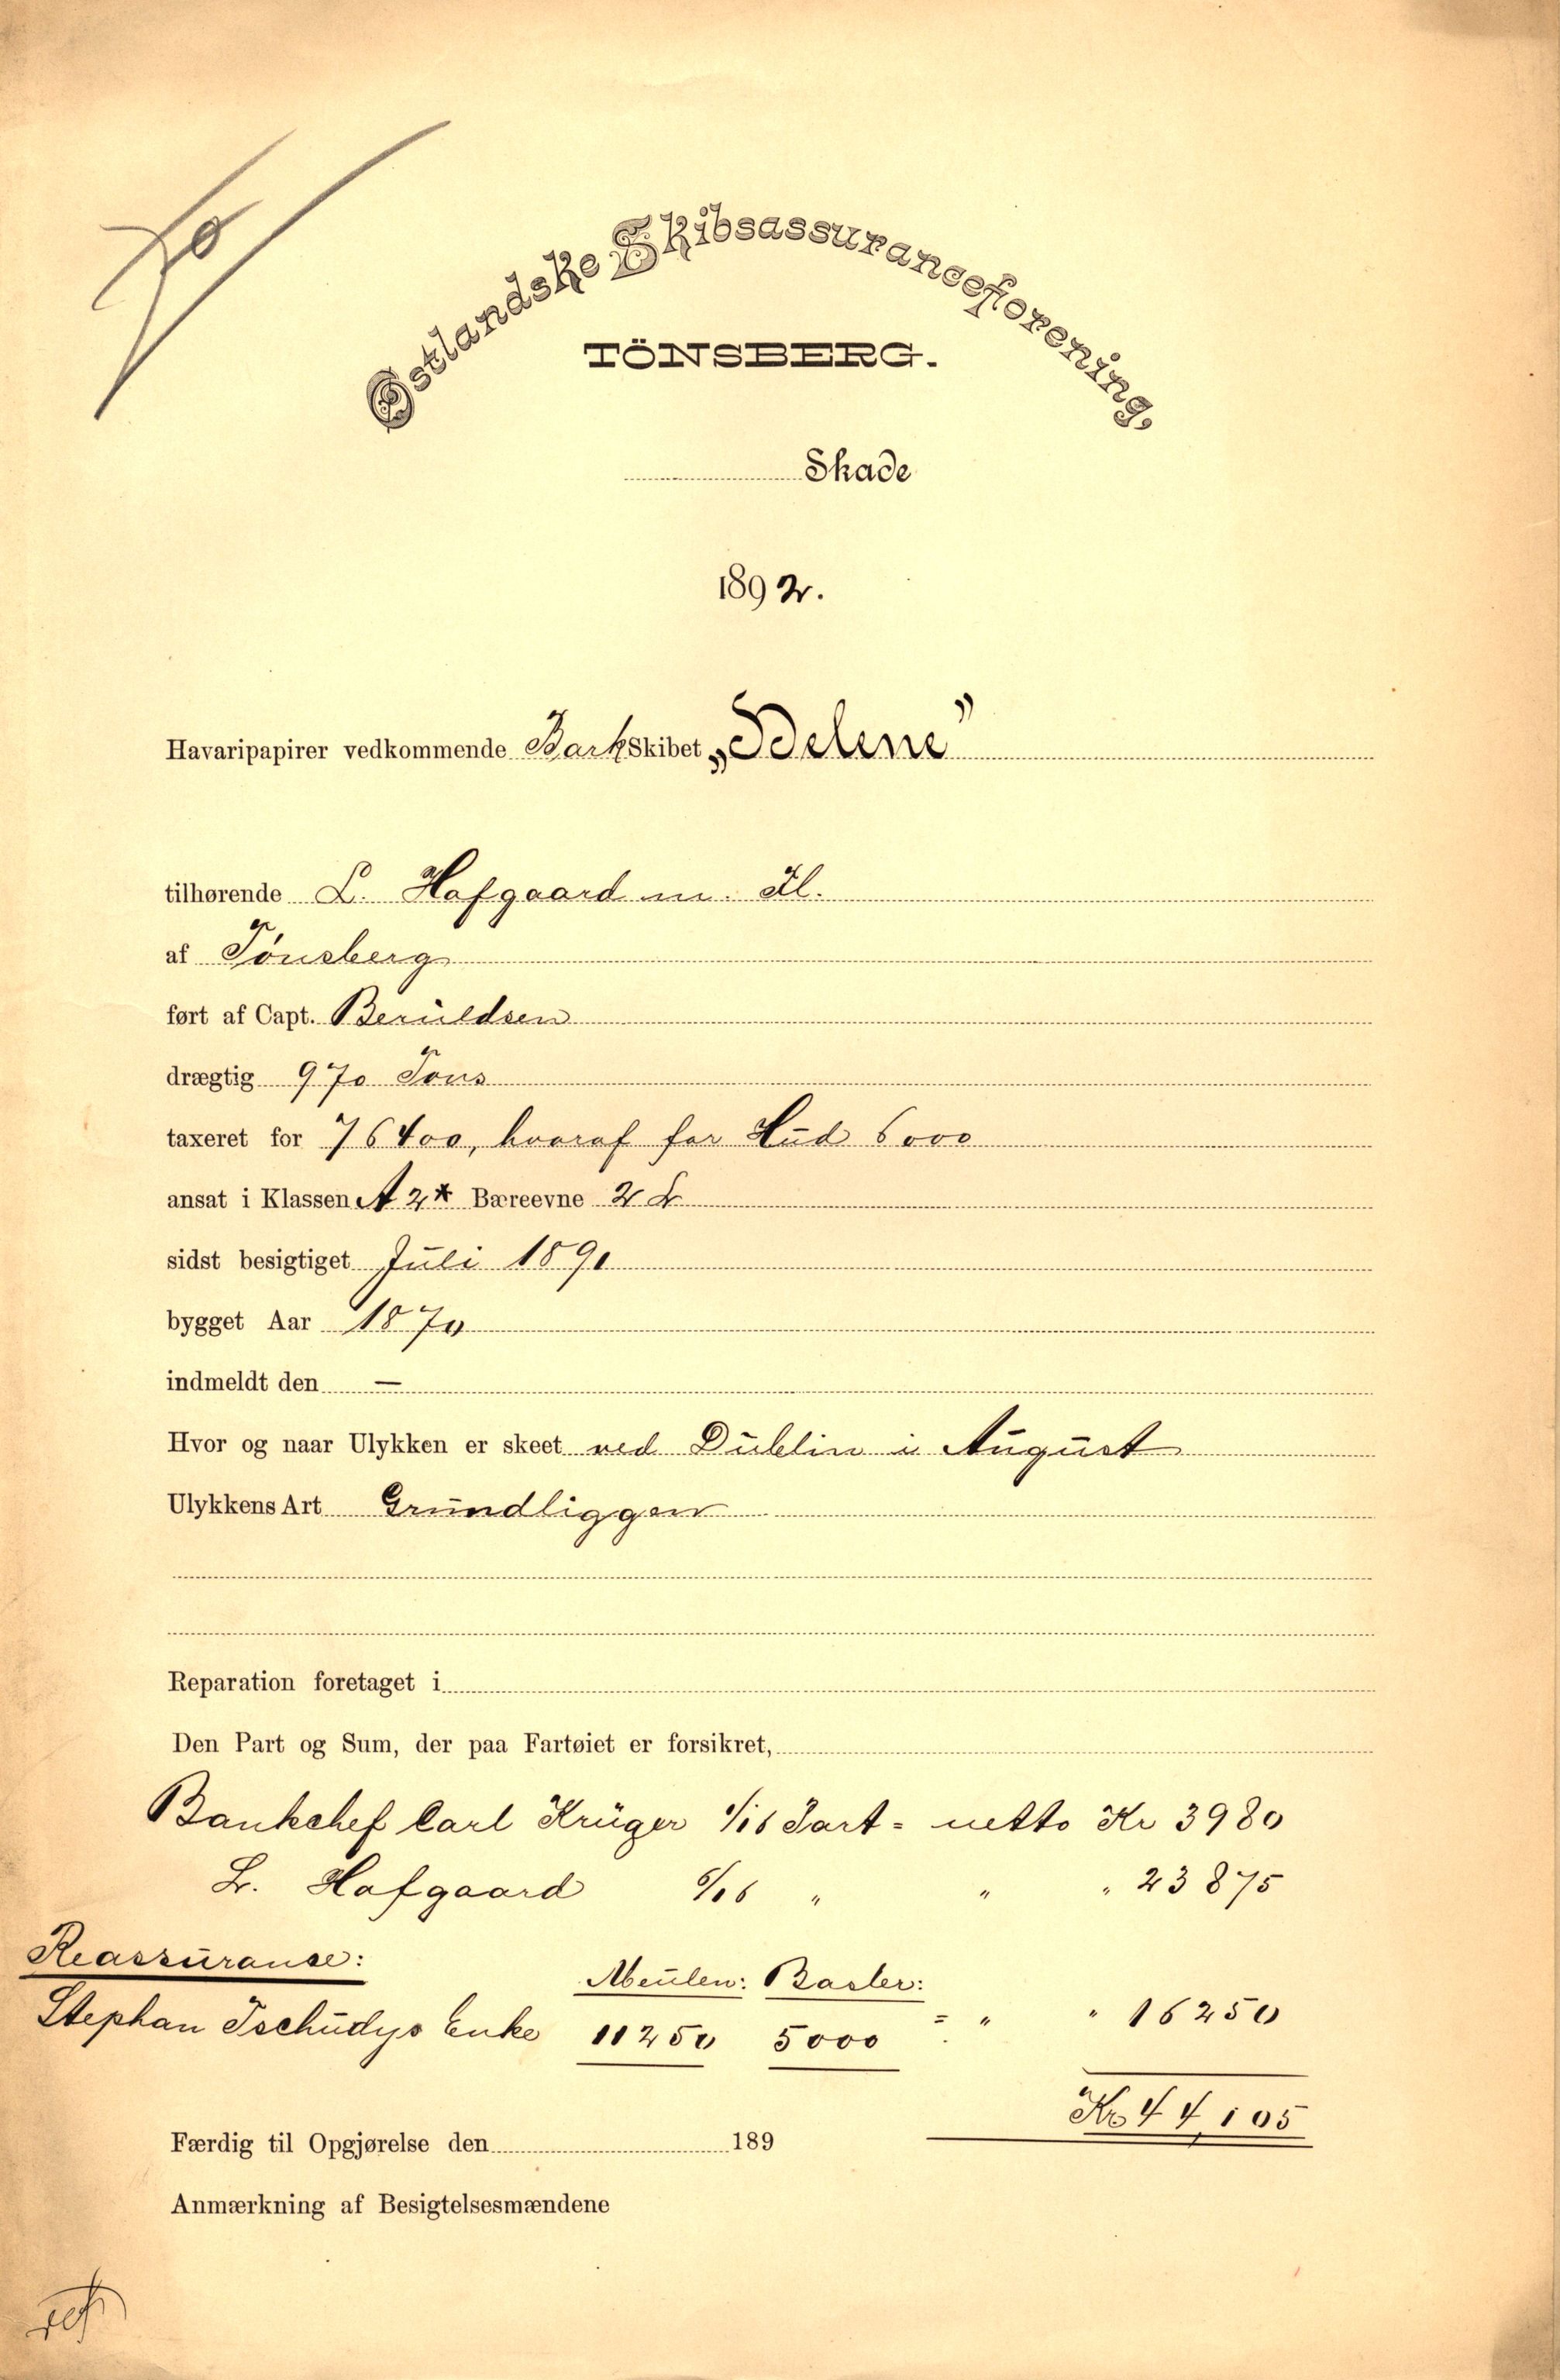 Østlandske Skibsassuranceforening,
TÖNSBERG.
Skade
1892.
Havaripapirer vedkommende Bark Skibet „Idelene”
tilhørende L. Hofgaard m. Fl.
af Tönsberg
ført af Capt. Beruldsen
drægtig 970 Tons
taxeret for 76400, hvoraf for Hud 6000
ansat i Klassen A2* Bæreevne 2 L
sidst besigtiget Juli 1890
bygget Aar 1870
indmeldt den —
Hvor og naar Ulykken er skeet ved Dublin i August
Ulykkens Art Grundliggen
Reparation foretaget i
Den Part og Sum, der paa Fartøiet er forsikret,
Bankchef Carl Krüger 1/16 Part = netto Kr 3980
L. Hofgaard 6/16 " " " 23875
Reassuranse:
Meulen: Basler:
Stephan Tschudys Enke 11250 5000 = " " 16250
Kr 44105
Færdig til Opgjørelse den 189
Anmærkning af Besigtelsesmændene